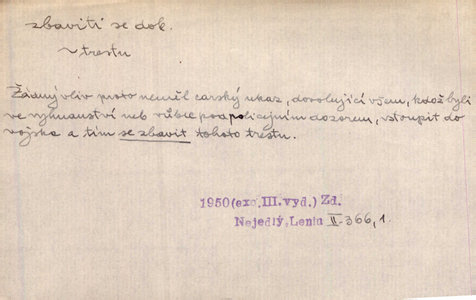 zbaviti se dok.
~ trestu
Žádný vliv proto neměl carský ukaz, dovolující všem, kdož byli
ve vyhnanství neb vůbec pod policejním dozorem, vstoupit do
vojska a tím se zbavit tohoto trestu.
1950 (exc. III. vyd.) Zd.
Nejedlý, Lenin II-366, 1.